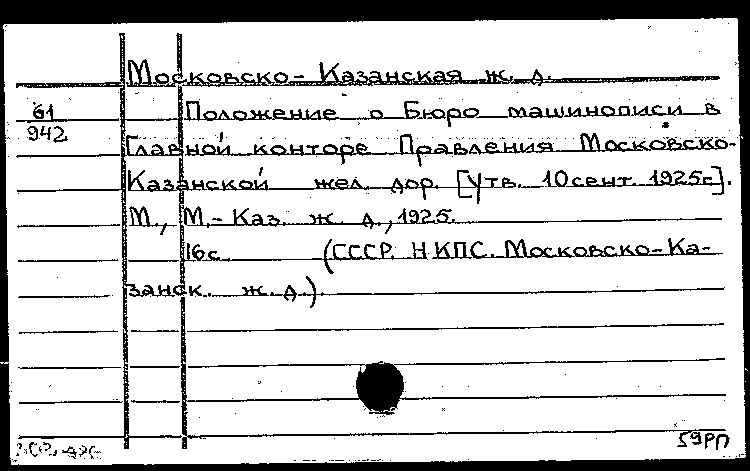 Московско-Казанская ж. д.
61
942
Положение о Бюро машинописи в
Главной конторе Правления Московско-
Казанской жел. дор. [Утв. 10 сент. 1925г.].
М., М.-Каз. ж. д., 1925.
16с. (СССР. НКПС. Московско-Ка-
занск. ж. д.).
59РП